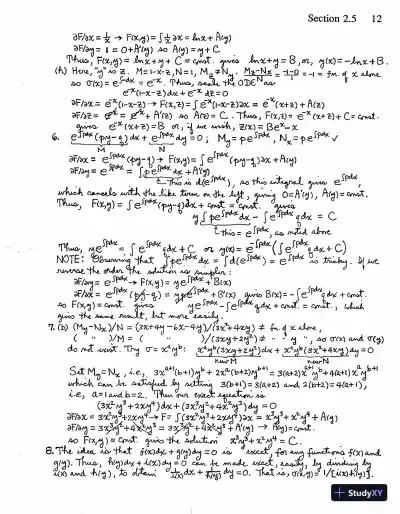 Section 2.5 12
∂F/∂x = 1/x → F(x,y) = ∫ 1/x ∂x = lnx + A(y)
∂F/∂y = 1 = 0 + A'(y) so A(y) = y + C
Thus, F(x,y) = lnx + y + C = const. gives lnx + y = B, or, y(x) = -lnx + B.
(h) Here, "y" is z. M = 1-x-z, N = 1,
so σ(x) = e^-x. Thus, scale the ODE as
e^-x(1-x-z)dx + e^-x dz = 0
∂F/∂x = e^-x(1-x-z) → F(x,z) = ∫e^-x(1-x-z)∂x = e^-x(x+z) + A(z)
∂F/∂z = e^-x = e^-x + A'(z) so A(z) = C. Thus, F(x,z) = e^-x(x+z) + C = const.
gives e^-x(x+z) = B or, if we wish, z(x) = Be^x - x
6. e^∫pdx (py-q)dx + e^∫pdx dy = 0; My = pe^∫pdx, Nx = pe^∫pdx ✓
M N
∂F/∂x = e^∫pdx (py-q) → F(x,y) = ∫e^∫pdx (py-q)∂x + A(y)
∂F/∂y = e^∫pdx = ∫pe^∫pdx ∂x + A'(y)
This is d(e^∫pdx), so this integral gives e^∫pdx,
which cancels with the like term on the left, giving 0 = A'(y), A(y) = const.
Thus, F(x,y) = ∫e^∫pdx (py-q)dx + const. = const. gives
y∫pe^∫pdx dx - ∫e^∫pdx q dx = C
this = e^∫pdx, as noted above
Thus, ye^∫pdx = ∫e^∫pdx q dx + C or y(x) = e^-∫pdx (∫e^∫pdx q dx + C)
NOTE: Observing that ∫pe^∫pdx dx = ∫d(e^∫pdx) = e^∫pdx is tricky. If we
reverse the order the solution is simpler:
∂F/∂y = e^∫pdx → F(x,y) = ye^∫pdx + B(x)
∂F/∂x = e^∫pdx (py-q) = ype^∫pdx + B'(x) gives B(x) = -∫e^∫pdx q dx + const.
so F(x,y) = const. gives ye^∫pdx - ∫e^∫pdx q dx + const. = const., which
gives the same result, but more easily.
7. (b) (My-Nx)/N = (3x+4y-6x-4y)/(3x²+4xy) ≠ fn. of x alone,
( " )/M = ( " )/(3xy+2y²) ≠ " " y ", so σ(x) and σ(y)
do not exist. Try σ = x^a y^b: x^a y^b(3xy+2y²)dx + x^a y^b(3x²+4xy)dy = 0
new M new N
Set My = Nx, i.e.,
which can be satisfied by setting 3(b+1) = 3(a+2) and 2(b+2) = 4(a+1),
i.e., a = 1 and b = 2. Then our exact equation is
(3x²y³+2xy⁴)dx + (3x³y²+4x²y³)dy = 0
∂F/∂x = 3x²y³+2xy⁴ → F = ∫(3x²y³+2xy⁴)∂x = x³y³+x²y⁴+A(y)
∂F/∂y = 3x³y²+4x²y³ = 3x³y²+4x²y³+A'(y) → A(y) = const.
so F(x,y) = const. gives the solution x³y³+x²y⁴ = C.
8. The idea is that f(x)dx + g(y)dy = 0 is exact, for any functions f(x) and
g(y). Thus, can be made exact, easily, by dividing by
and h(y), to obtain That is,
+ StudyXY